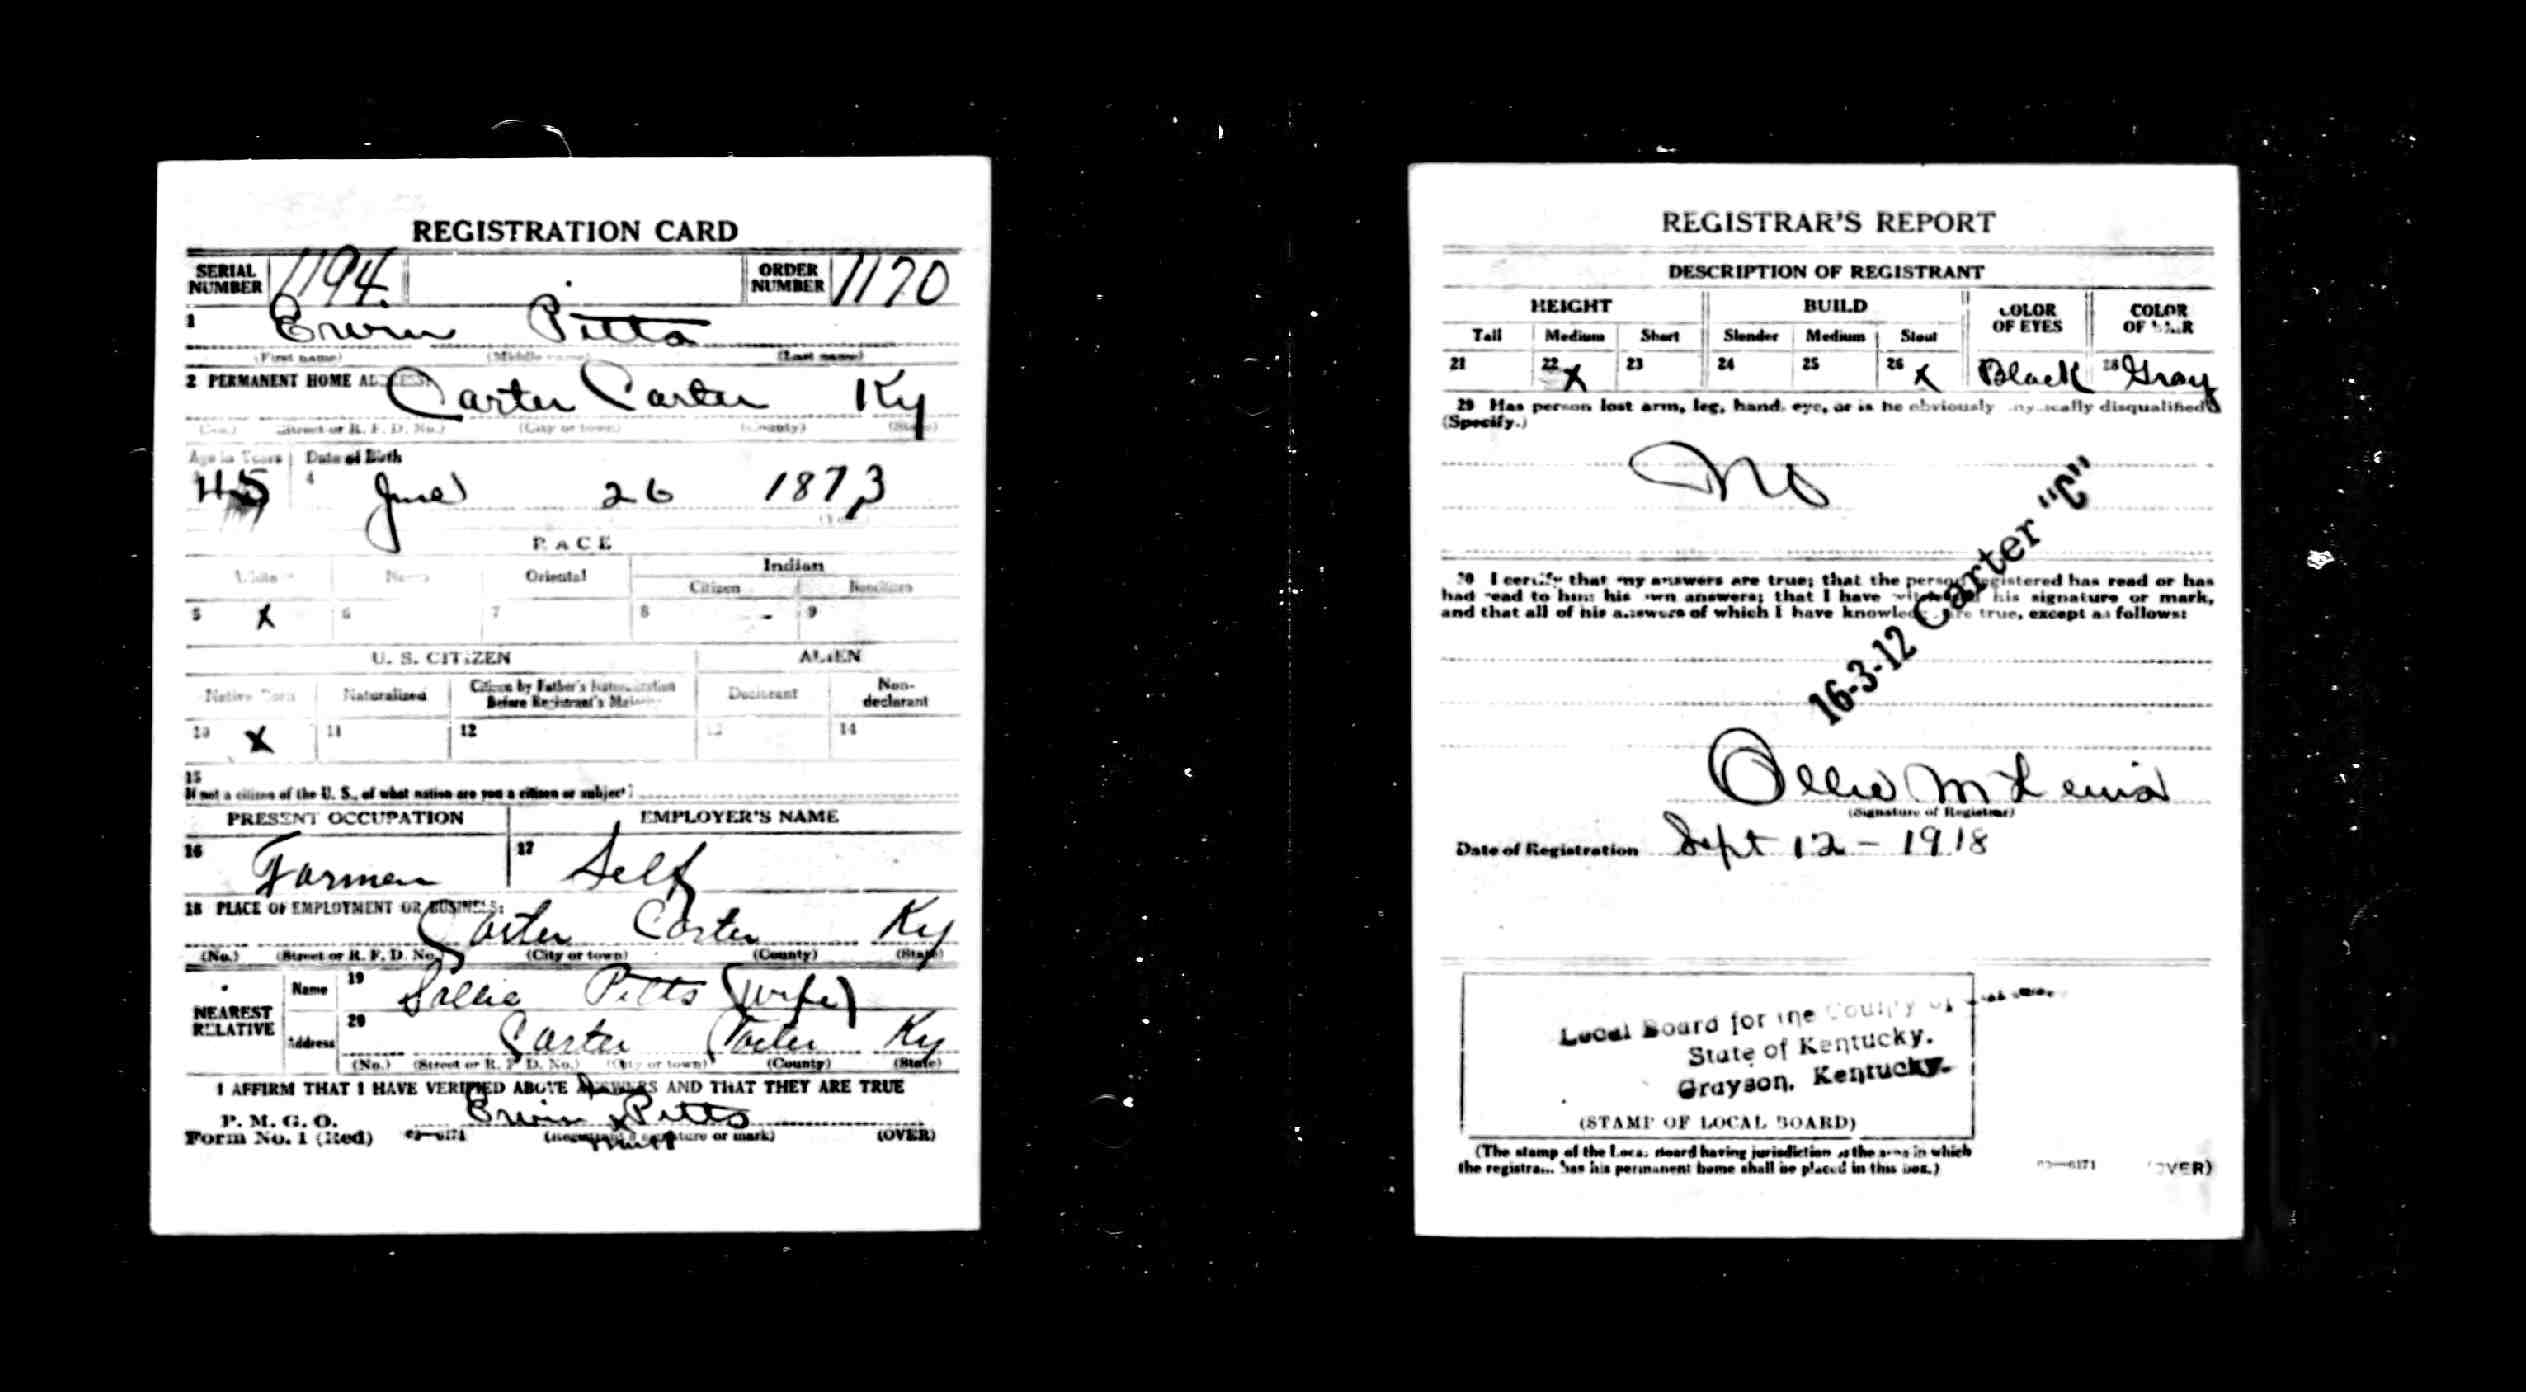 REGISTRATION CARD
SERIAL NUMBER 1194 ORDER NUMBER 1170
1 Erwin Pitts
(First name) (Middle name) (Last name)
2 PERMANENT HOME ADDRESS: Carter Carter Ky
(No.) (Street or R. F. D. No.) (City or town) (County) (State)
Age in Years Date of Birth
45 4 June 26 1873
(Year)
RACE
White Negro Oriental Indian
Citizen Noncitizen
5 X 6 7 8 - 9
U. S. CITIZEN ALIEN
Native Born Naturalized Citizen by Father's Naturalization Before Registrant's Majority Declarant Non-declarant
10 X 11 12 13 14
15
If not a citizen of the U. S., of what nation are you a citizen or subject?
PRESENT OCCUPATION EMPLOYER'S NAME
16 Farmer 17 Self
18 PLACE OF EMPLOYMENT OR BUSINESS:
Carter Carter Ky
(No.) (Street or R. F. D. No.) (City or town) (County) (State)
NEAREST RELATIVE Name 19 Sallie Pitts (Wife)
Address 20 Carter Carter Ky
(No.) (Street or R. F. D. No.) (City or town) (County) (State)
I AFFIRM THAT I HAVE VERIFIED ABOVE ANSWERS AND THAT THEY ARE TRUE
P. M. G. O.
Form No. 1 (Red) 03—6171 Erwin x Pitts
(Registrant's signature or mark) (OVER)
REGISTRAR'S REPORT
DESCRIPTION OF REGISTRANT
HEIGHT BUILD COLOR OF EYES COLOR OF HAIR
Tall Medium Short Slender Medium Stout
21 22 X 23 24 25 26 X Black 28 Gray
29 Has person lost arm, leg, hand, eye, or is he obviously physically disqualified?
(Specify.)
No
30 I certify that my answers are true; that the person registered has read or has
had read to him his own answers; that I have witnessed his signature or mark,
and that all of his answers of which I have knowledge are true, except as follows:
16-3-12 Carter "C"
Ollie M Lewis
(Signature of Registrar)
Date of Registration Sept 12 - 1918
Local Board for the County of
State of Kentucky.
Grayson, Kentucky.
(STAMP OF LOCAL BOARD)
(The stamp of the Local Board having jurisdiction of the area in which
the registrant has his permanent home shall be placed in this box.)
03—6171 (OVER)